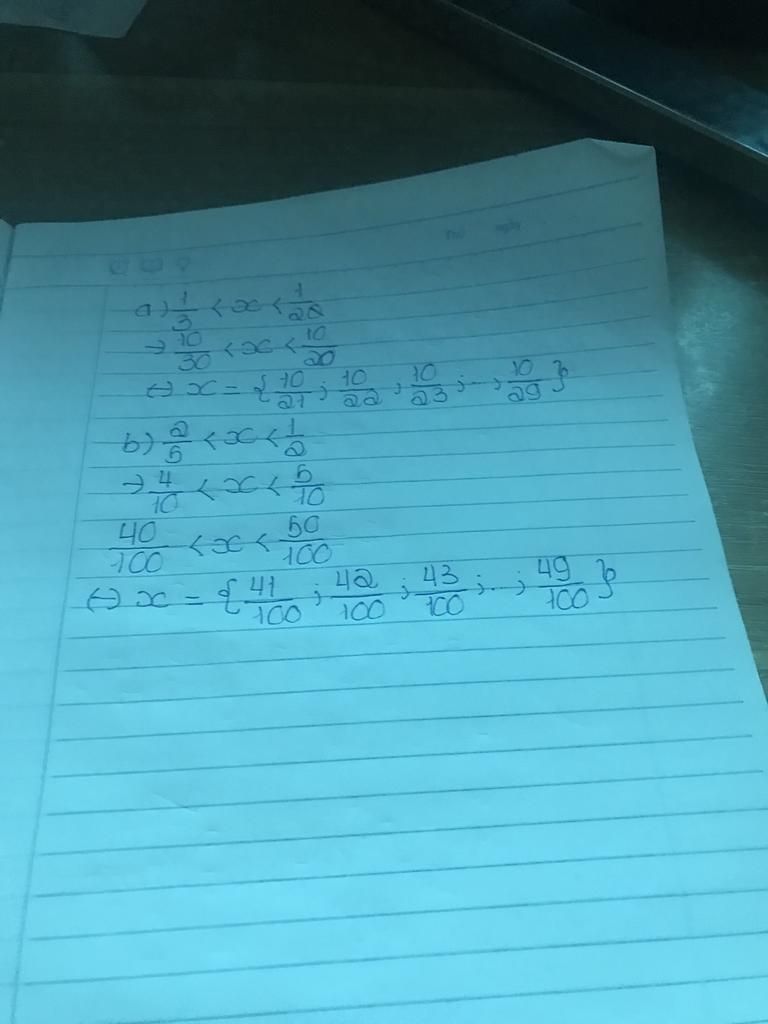 a) 1/3 < x < 1/2
→ 10/30 < x < 10/20
↔ x = {10/21 ; 10/22 ; 10/23 ; ... ; 10/29}
b) 2/5 < x < 1/2
→ 4/10 < x < 5/10
40/100 < x < 50/100
↔ x = {41/100 ; 42/100 ; 43/100 ; ... ; 49/100}